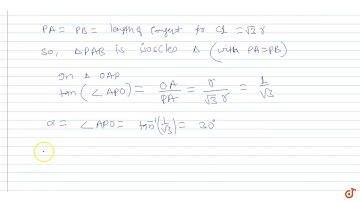 PA = PB = length of tangent to C1 = √3 r
So, △PAB is isosceles △ (with PA=PB)
In △ OAP
tan(∠APO) = OA/PA = r/√3 r = 1/√3
α = ∠APO = tan⁻¹(1/√3) = 30°